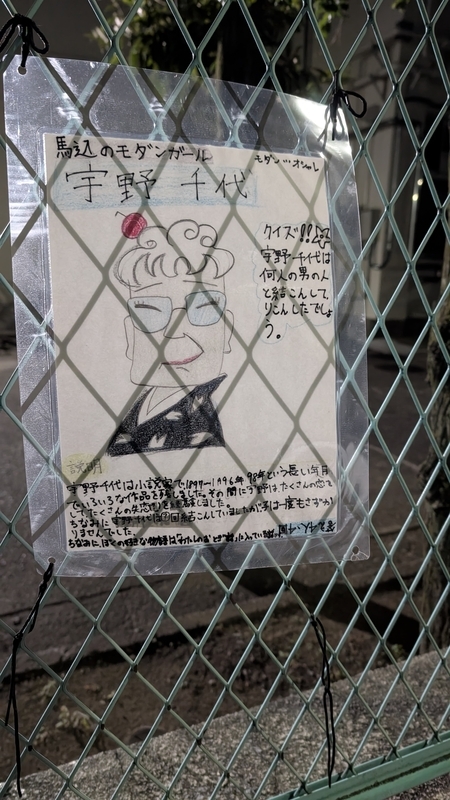 馬込のモダンガール
モダン…オシャレ
宇野 千代
クイズ!!
宇野千代は
何人の男の人
と結こんして、
りこんしたでしょ
う。
説明
宇野千代は小説家で1897〜1996年 98年という長い年月
でいろいろな作品を
その間に宇野は、たくさんの恋を
してたくさんの失恋
しました。
ちなみに宇野千代は
回結こんしていましたが子は一度も
りませんでした。
ちなみに、ぼくの好きな物語は